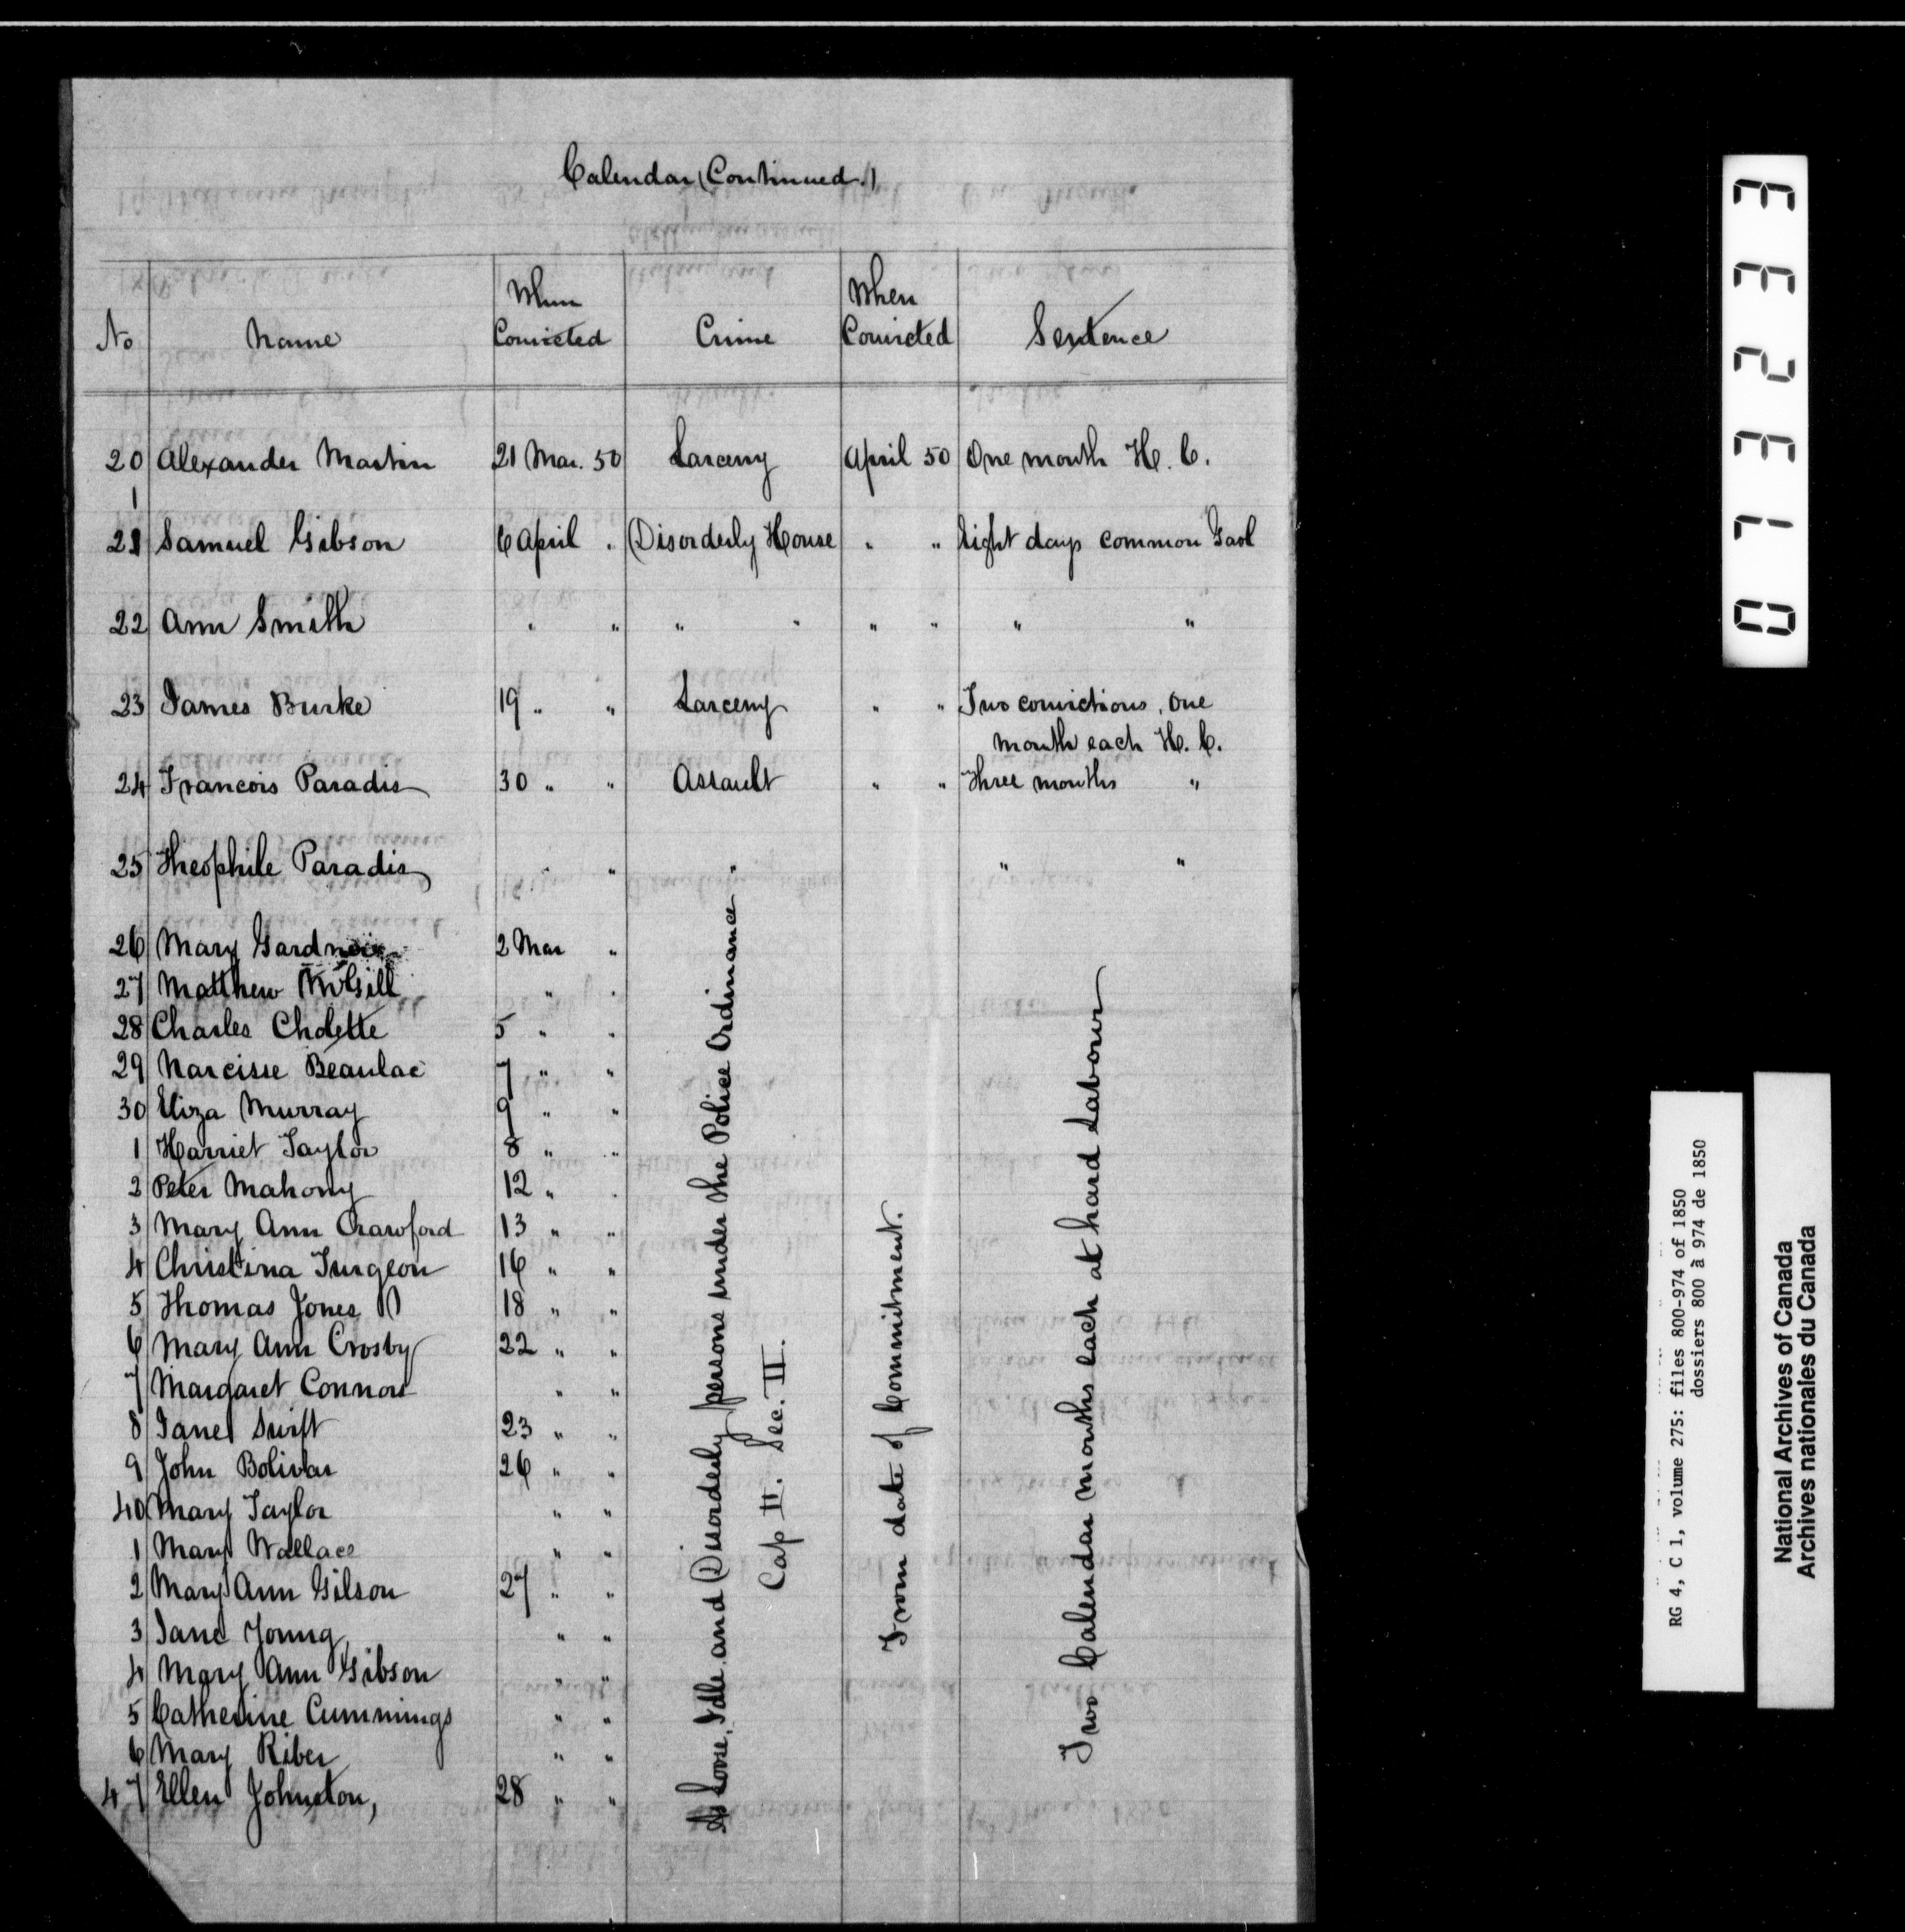 Calendar (Continued.)
No Name When Convicted Crime When Convicted Sentence
20 Alexander Martin 21 Mar. 50 Larceny April 50 One month H. C.
1
21 Samuel Gibson 6 April " Disorderly House " " Eight days common Gaol
22 Ann Smith " " " " " " " "
23 James Burke 19 " " Larceny " " Two convictions, one
month each H. C.
24 Francois Paradis 30 " " Assault " " Three months "
25 Theophile Paradis " " " " "
26 Mary Gardner 2 Mar "
27 Matthew McGill " "
28 Charles Cholette 5 " "
29 Narcisse Beaulac 7 " "
30 Eliza Murray 9 " "
1 Harriet Taylor 8 " "
2 Peter Mahony 12 " "
3 Mary Ann Crawford 13 " "
4 Christina Turgeon 16 " "
5 Thomas Jones 18 " "
6 Mary Ann Crosby 22 " "
7 Margaret Connor " "
8 Jane Swift 23 " "
9 John Bolivar 26 " "
40 Mary Taylor " "
1 Mary Wallace " "
2 Mary Ann Gilson 27 " "
3 Jane Young " "
4 Mary Ann Gibson " "
5 Catherine Cummings " "
6 Mary Riber " "
47 Ellen Johnston, 28 " "
As Loose, Idle and Disorderly persons under the Police Ordinance
Cap II. Sec. II.
From date of Commitment.
Two Calendar months each at hard Labour
073233
RG 4, C 1, volume 275: files 800-974 of 1850
dossiers 800 à 974 de 1850
National Archives of Canada
Archives nationales du Canada